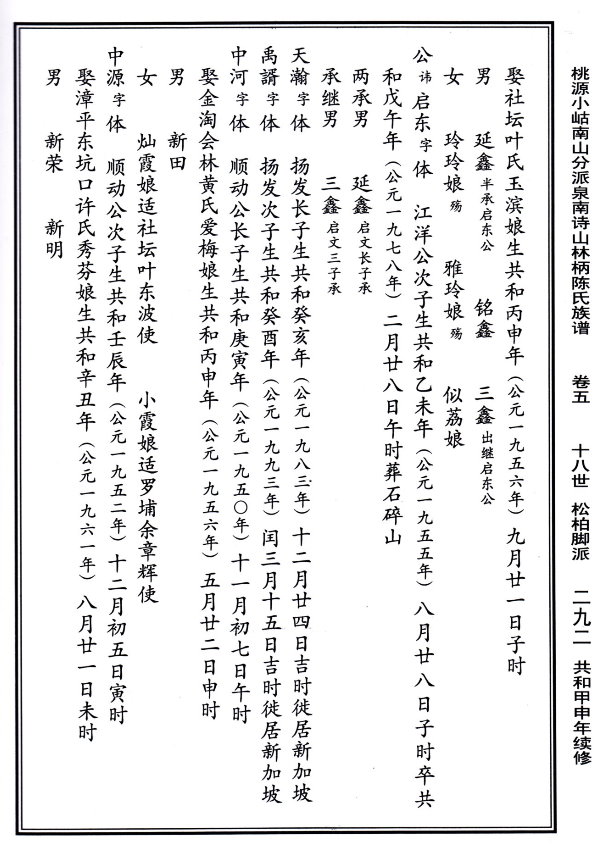 桃源小岵南山分派泉南诗山林柄陈氏族谱 卷五 十八世 松柏脚派 二九二 共和甲申年续修
娶社坛叶氏玉滨娘生共和丙申年（公元一九五六年）九月廿一日子时
男 延鑫半承启东公 铭鑫 三鑫出继启东公
女 玲玲娘殇 雅玲娘殇 似荔娘
公讳启东字体 江洋公次子生共和乙未年（公元一九五五年）八月廿八日子时卒共
和戊午年（公元一九七八年）二月廿八日午时葬石碎山
两承男 延鑫启文长子承
承继男 三鑫启文三子承
天瀚字体 扬发长子生共和癸亥年（公元一九八三年）十二月廿四日吉时徙居新加坡
禹谞字体 扬发次子生共和癸酉年（公元一九九三年）闰三月十五日吉时徙居新加坡
中河字体 顺动公长子生共和庚寅年（公元一九五〇年）十一月初七日午时
娶金淘会林黄氏爱梅娘生共和丙申年（公元一九五六年）五月廿二日申时
男 新田
女 灿霞娘适社坛叶东波使 小霞娘适罗埔余章辉使
中源字体 顺动公次子生共和壬辰年（公元一九五二年）十二月初五日寅时
娶漳平东坑口许氏秀芬娘生共和辛丑年（公元一九六一年）八月廿一日未时
男 新荣 新明